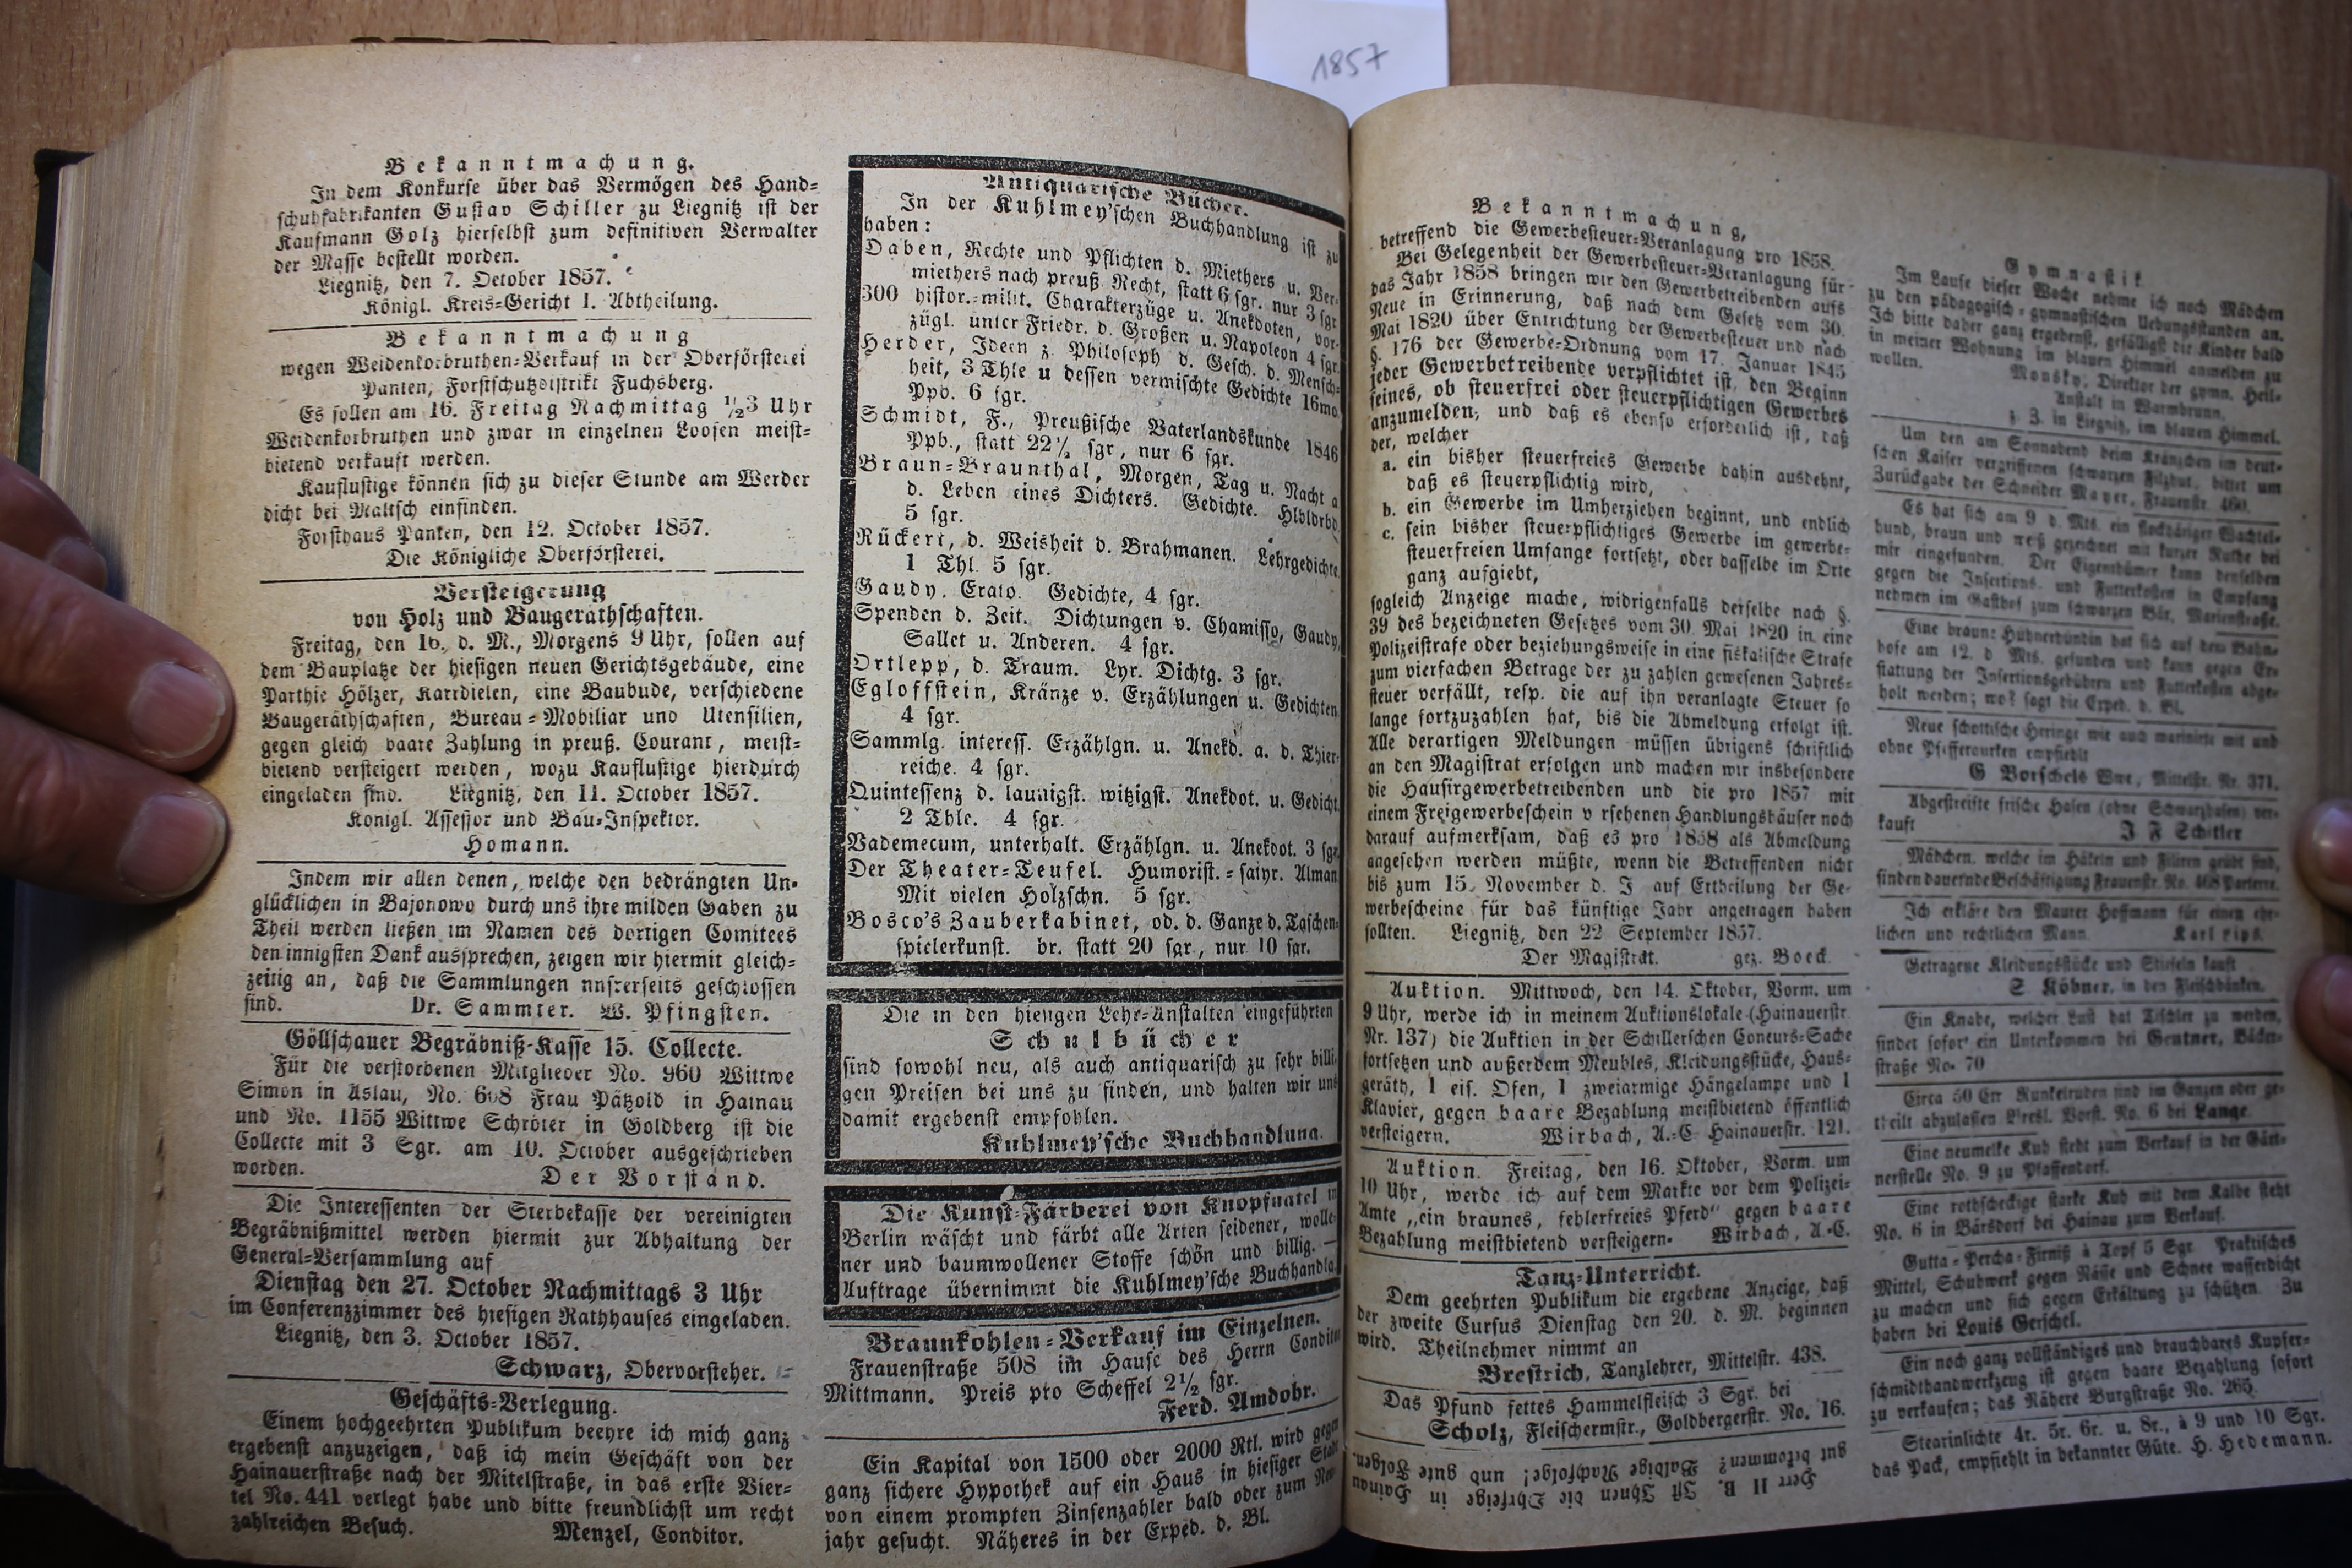 1857
Bekanntmachung.
In dem Konkurse über das Vermögen des Hand-
schuhfabrikanten Gustav Schiller zu Liegnitz ist der
Kaufmann Golz hierselbst zum definitiven Verwalter
der Masse bestellt worden.
Liegnitz, den 7. October 1857.
Königl. Kreis-Gericht I. Abtheilung.
Bekanntmachung
wegen Weidenkorbruthen-Verkauf in der Oberförsterei
Panten, Forstschutzdistrikt Fuchsberg.
Es sollen am 16. Freitag Nachmittag ½3 Uhr
Weidenkorbruthen und zwar in einzelnen Loosen meist-
bietend verkauft werden.
Kauflustige können sich zu dieser Stunde am Werder
dicht bei Maltsch einfinden.
Forsthaus Panten, den 12. October 1857.
Die Königliche Oberförsterei.
Versteigerung
von Holz und Baugeräthschaften.
Freitag, den 16. d. M., Morgens 9 Uhr, sollen auf
dem Bauplatze der hiesigen neuen Gerichtsgebäude, eine
Parthie Hölzer, Karrdielen, eine Baubude, verschiedene
Baugeräthschaften, Bureau-Mobiliar und Utensilien,
gegen gleich baare Zahlung in preuß. Courant, meist-
bietend versteigert werden, wozu Kauflustige hierdurch
eingeladen sind. Liegnitz, den 11. October 1857.
Königl. Assessor und Bau-Inspektor.
Homann.
Indem wir allen denen, welche den bedrängten Un-
glücklichen in Bajonowo durch uns ihre milden Gaben zu
Theil werden ließen im Namen des dortigen Comitees
den innigsten Dank aussprechen, zeigen wir hiermit gleich-
zeitig an, daß die Sammlungen unsrerseits geschlossen
sind. Dr. Sammter. W. Pfingsten.
Göllschauer Begräbniß-Kasse 15. Collecte.
Für die verstorbenen Mitglieder No. 960 Wittwe
Simon in Aslau, No. 608 Frau Pätzold in Hainau
und No. 1155 Wittwe Schröter in Goldberg ist die
Collecte mit 3 Sgr. am 10. October ausgeschrieben
worden. Der Vorstand.
Die Interessenten der Sterbekasse der vereinigten
Begräbnißmittel werden hiermit zur Abhaltung der
General-Versammlung auf
Dienstag den 27. October Nachmittags 3 Uhr
im Conferenzzimmer des hiesigen Rathhauses eingeladen.
Liegnitz, den 3. October 1857.
Schwarz, Obervorsteher.
Geschäfts-Verlegung.
Einem hochgeehrten Publikum beehre ich mich ganz
ergebenst anzuzeigen, daß ich mein Geschäft von der
Hainauerstraße nach der Mittelstraße, in das erste Vier-
tel No. 441 verlegt habe und bitte freundlichst um recht
zahlreichen Besuch. Menzel, Conditor.
Antiquarische Bücher.
In der Kuhlmey'schen Buchhandlung ist zu
haben:
Daben, Rechte und Pflichten d. Miethers u. Ver-
miethers nach preuß. Recht, statt 6 sgr. nur 3 sgr.
300 histor.-milit. Charakterzüge u. Anekdoten, vor-
zügl. unter Friedr. d. Großen u. Napoleon 4 sgr.
Herder, Ideen z. Philosoph d. Gesch. d. Mensch-
heit, 3 Thle u dessen vermischte Gedichte 16mo
Ppb. 6 sgr.
Schmidt, F., Preußische Vaterlandskunde 1846
Ppb., statt 22½ sgr, nur 6 sgr.
Braun-Braunthal, Morgen, Tag u. Nacht a
d. Leben eines Dichters. Gedichte. Hlbldrbd
5 sgr.
Rückert, d. Weisheit d. Brahmanen. Lehrgedichte.
1 Thl. 5 sgr.
Gaudy, Erato. Gedichte, 4 sgr.
Spenden d. Zeit. Dichtungen v. Chamisso, Gaudy,
Sallet u. Anderen. 4 sgr.
Ortlepp, d. Traum. Lyr. Dichtg. 3 sgr.
Egloffstein, Kränze v. Erzählungen u. Gedichten
4 sgr.
Sammlg. interess. Erzählgn. u. Anekd. a. d. Thier-
reiche. 4 sgr.
Quintessenz d. launigst. witzigst. Anekdot. u. Gedicht.
2 Thle. 4 sgr.
Vademecum, unterhalt. Erzählgn. u. Anekdot. 3 sgr.
Der Theater-Teufel. Humorist.-satyr. Alman
Mit vielen Holzschn. 5 sgr.
Bosco's Zauberkabinet, od. d. Ganze d. Taschen-
spielerkunst. br. statt 20 sgr., nur 10 sgr.
Die in den hiesigen Lehr-Anstalten eingeführten
Schulbücher
sind sowohl neu, als auch antiquarisch zu sehr billi-
gen Preisen bei uns zu finden, und halten wir uns
damit ergebenst empfohlen.
Kuhlmey'sche Buchhandlung.
Die Kunst-Färberei von Knopfnatel in
Berlin wäscht und färbt alle Arten seidener, wolle-
ner und baumwollener Stoffe schön und billig. —
Aufträge übernimmt die Kuhlmey'sche Buchhandlg.
Braunkohlen-Verkauf im Einzelnen.
Frauenstraße 508 im Hause des Herrn Conditor
Mittmann. Preis pro Scheffel 2½ sgr.
Ferd. Amdohr.
Ein Kapital von 1500 oder 2000 Rtl. wird gegen
ganz sichere Hypothek auf ein Haus in hiesiger Stadt
von einem prompten Zinsenzahler bald oder zum Neu-
jahr gesucht. Näheres in der Exped. d. Bl.
Bekanntmachung,
betreffend die Gewerbesteuer-Veranlagung pro 1858.
Bei Gelegenheit der Gewerbesteuer-Veranlagung für
das Jahr 1858 bringen wir den Gewerbetreibenden aufs
Neue in Erinnerung, daß nach dem Gesetz vom 30.
Mai 1820 über Entrichtung der Gewerbesteuer und nach
§. 176 der Gewerbe-Ordnung vom 17. Januar 1845
jeder Gewerbetreibende verpflichtet ist, den Beginn
seines, ob steuerfrei oder steuerpflichtigen Gewerbes
anzumelden, und daß es ebenso erforderlich ist, daß
der, welcher
a. ein bisher steuerfreies Gewerbe dahin ausdehnt,
daß es steuerpflichtig wird,
b. ein Gewerbe im Umherziehen beginnt, und endlich
c. sein bisher steuerpflichtiges Gewerbe im gewerbe-
steuerfreien Umfange fortsetzt, oder dasselbe im Orte
ganz aufgiebt,
sogleich Anzeige mache, widrigenfalls derselbe nach §.
39 des bezeichneten Gesetzes vom 30. Mai 1820 in eine
Polizeistrafe oder beziehungsweise in eine fiskalische Strafe
zum vierfachen Betrage der zu zahlen gewesenen Jahres-
steuer verfällt, resp. die auf ihn veranlagte Steuer so
lange fortzuzahlen hat, bis die Abmeldung erfolgt ist.
Alle derartigen Meldungen müssen übrigens schriftlich
an den Magistrat erfolgen und machen wir insbesondere
die Hausirgewerbetreibenden und die pro 1857 mit
einem Freigewerbeschein v rsehenen Handlungshäuser noch
darauf aufmerksam, daß es pro 1858 als Abmeldung
angesehen werden müßte, wenn die Betreffenden nicht
bis zum 15. November d. J auf Ertheilung der Ge-
werbescheine für das künftige Jahr angetragen haben
sollten. Liegnitz, den 22 September 1857.
Der Magistrat. gez. Boeck.
Auktion. Mittwoch, den 14. Oktober, Vorm. um
9 Uhr, werde ich in meinem Auktionslokale (Hainauerstr.
Nr. 137) die Auktion in der Schillerschen Concurs-Sache
fortsetzen und außerdem Meubles, Kleidungsstücke, Haus-
geräth, 1 eis. Ofen, 1 zweiarmige Hängelampe und 1
Klavier, gegen baare Bezahlung meistbietend öffentlich
versteigern. Wirbach, A.-C Hainauerstr. 121.
Auktion. Freitag, den 16. Oktober, Vorm. um
10 Uhr, werde ich auf dem Markte vor dem Polizei-
Amte „ein braunes, fehlerfreies Pferd" gegen baare
Bezahlung meistbietend versteigern. Wirbach, A.-C.
Tanz-Unterricht.
Dem geehrten Publikum die ergebene Anzeige, daß
der zweite Cursus Dienstag den 20. d. M. beginnen
wird. Theilnehmer nimmt an
Brestrich, Tanzlehrer, Mittelstr. 438.
Das Pfund fettes Hammelfleisch 3 Sgr. bei
Scholz, Fleischermstr., Goldbergerstr. No. 16.
Herr H B. Ist Ihnen die Ohrfeige in Hainau
gut bekommen? Baldige Nachfolge! und gute Folgen.
Gymnastik
Im Laufe dieser Woche nehme ich noch Mädchen
zu den pädagogisch-gymnastischen Uebungsstunden an.
Ich bitte daher ganz ergebenst, gefälligst die Kinder bald
in meiner Wohnung im blauen Himmel anmelden zu
wollen. Monsky, Direktor der gymn. Heil-
Anstalt in Warmbrunn,
z. Z. in Liegnitz, im blauen Himmel.
Um den am Sonnabend beim Kränzchen im deut-
schen Kaiser vergriffenen schwarzen Filzhut, bittet um
Zurückgabe der Schneider Mayer, Frauenstr. 460.
Es hat sich am 9 d. Mts. ein flockhäriger Wachtel-
hund, braun und weß gezeichnet mit kurzer Ruthe bei
mir eingefunden. Der Eigenthümer kann denselben
gegen die Insertions- und Futterkosten in Empfang
nehmen im Gasthof zum schwarzen Bär, Marienstraße.
Eine braune Hühnerhündin hat sich auf dem Bahn-
hofe am 12. d Mts. gefunden und kann gegen Er-
stattung der Insertionsgebühren und Futterkosten abge-
holt werden; wo? sagt die Exped. d. Bl.
Neue schottische Heringe wie auch marinirte mit und
ohne Pfeffergurken empfiehlt
G Borschels Wwe, Mittelstr. Nr. 371.
Abgestreifte frische Hasen (ohne Schwarzhasen) ver-
kauft J F Schitler
Mädchen, welche im Häkeln und Filiren geübt sind,
finden dauernde Beschäftigung Frauenstr. No. 468 Parterre.
Ich erkläre den Maurer Hoffmann für einen ehr-
lichen und rechtlichen Mann. Karl Lips.
Getragene Kleidungsstücke und Stiefeln kauft
S Köbner, in den Fleischbänken.
Ein Knabe, welcher Lust hat Tischler zu werden,
findet sofort ein Unterkommen bei Gentner, Bäcker-
straße No. 70
Circa 50 Ctr Runkelrüben sind im Ganzen oder ge-
theilt abzulassen Bresl. Vorst. No. 6 bei Lange.
Eine neumelke Kuh steht zum Verkauf in der Gärt-
nerstelle No. 9 zu Pfaffendorf.
Eine rothscheckige starke Kuh mit dem Kalbe steht
No. 6 in Bärsdorf bei Hainau zum Verkauf.
Gutta-Percha-Firniß à Topf 5 Sgr. Praktisches
Mittel, Schuhwerk gegen Nässe und Schnee wasserdicht
zu machen und sich gegen Erkältung zu schützen. Zu
haben bei Louis Gerschel.
Ein noch ganz vollständiges und brauchbares Kupfer-
schmidthandwerkzeug ist gegen baare Bezahlung sofort
zu verkaufen; das Nähere Burgstraße No. 265.
Stearinlichte 4r. 5r. 6r. u. 8r., à 9 und 10 Sgr.
das Pack, empfiehlt in bekannter Güte. H. Hedemann.